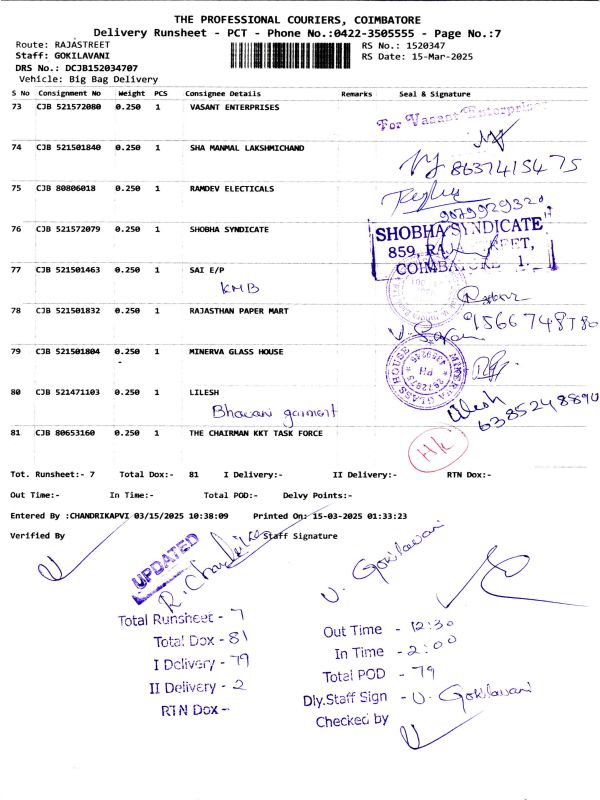 THE PROFESSIONAL COURIERS, COIMBATORE
Delivery Runsheet - PCT - Phone No.:0422-3505555 - Page No.:7
Route: RAJASTREET RS No.: 1520347
Staff: GOKILAVANI RS Date: 15-Mar-2025
DRS No.: DCJB152034707
Vehicle: Big Bag Delivery
S No Consignment No Weight PCS Consignee Details Remarks Seal & Signature
73 CJB 521572080 0.250 1 VASANT ENTERPRISES
For Vasant Enterprises
74 CJB 521501840 0.250 1 SHA MANMAL LAKSHMICHAND
8637415475
75 CJB 80806018 0.250 1 RAMDEV ELECTICALS
9079929320
76 CJB 521572079 0.250 1 SHOBHA SYNDICATE
SHOBHA SYNDICATE
859, RAJA STREET,
COIMBATORE 1.
77 CJB 521501463 0.250 1 SAI E/P
KMB
78 CJB 521501832 0.250 1 RAJASTHAN PAPER MART
9566748780
79 CJB 521501804 0.250 1 MINERVA GLASS HOUSE
MINERVA GLASS HOUSE
PH
80 CJB 521471103 0.250 1 LILESH
Bhavani garment
Lilesh
6385248890
81 CJB 80653160 0.250 1 THE CHAIRMAN KKT TASK FORCE
HK
Tot. Runsheet:- 7 Total Dox:- 81 I Delivery:- II Delivery:- RTN Dox:-
Out Time:- In Time:- Total POD:- Delvy Points:-
Entered By :CHANDRIKAPVI 03/15/2025 10:38:09 Printed On: 15-03-2025 01:33:23
Verified By Staff Signature
UPDATED
R. Chandrika
V. Gokilavani
Total Runsheet - 7
Total Dox - 81
I Delivery - 79
II Delivery - 2
RTN Dox -
Out Time - 12:30
In Time - 2:00
Total POD - 79
Dly.Staff Sign - V. Gokilavani
Checked by